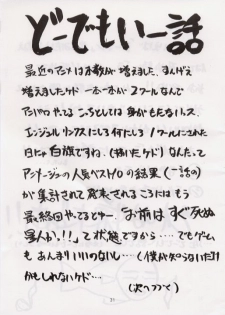 どーでもいー話
最近のアニメは本数が増えました、すんげえ
増えましたケド 一本一本が2クールなんで
アニパロやってる こっちとしては身がもたないッス。
エンジェルリンクスにしろ何にしろ 1クールにされた
日にゃ白旗ですね。(描いたケド) なんたって
アニメージュの人気ベスト10の結果(一話の)
が集計されて発表される ころには もう
最終回 やってるとゆー、お前は すぐ死ぬ
軍人か!!って状態ですから‥‥でもゲーム
も あんまり いいのないし‥‥(僕が知らないだけ
かもしれないケド‥‥
(次へつづく)